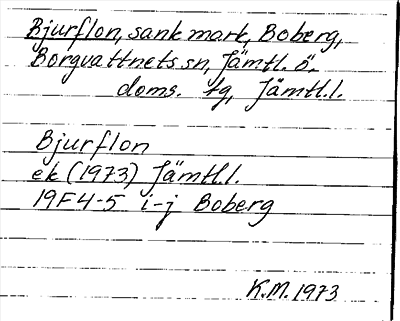 Bjurflon, sank mark, Boberg,
Borgvattnets sn, Jämtl. ö.
doms. tg, Jämtl. l.
Bjurflon
ek (1973) Jämtl. l.
19F4-5 i-j Boberg
K.M. 1973